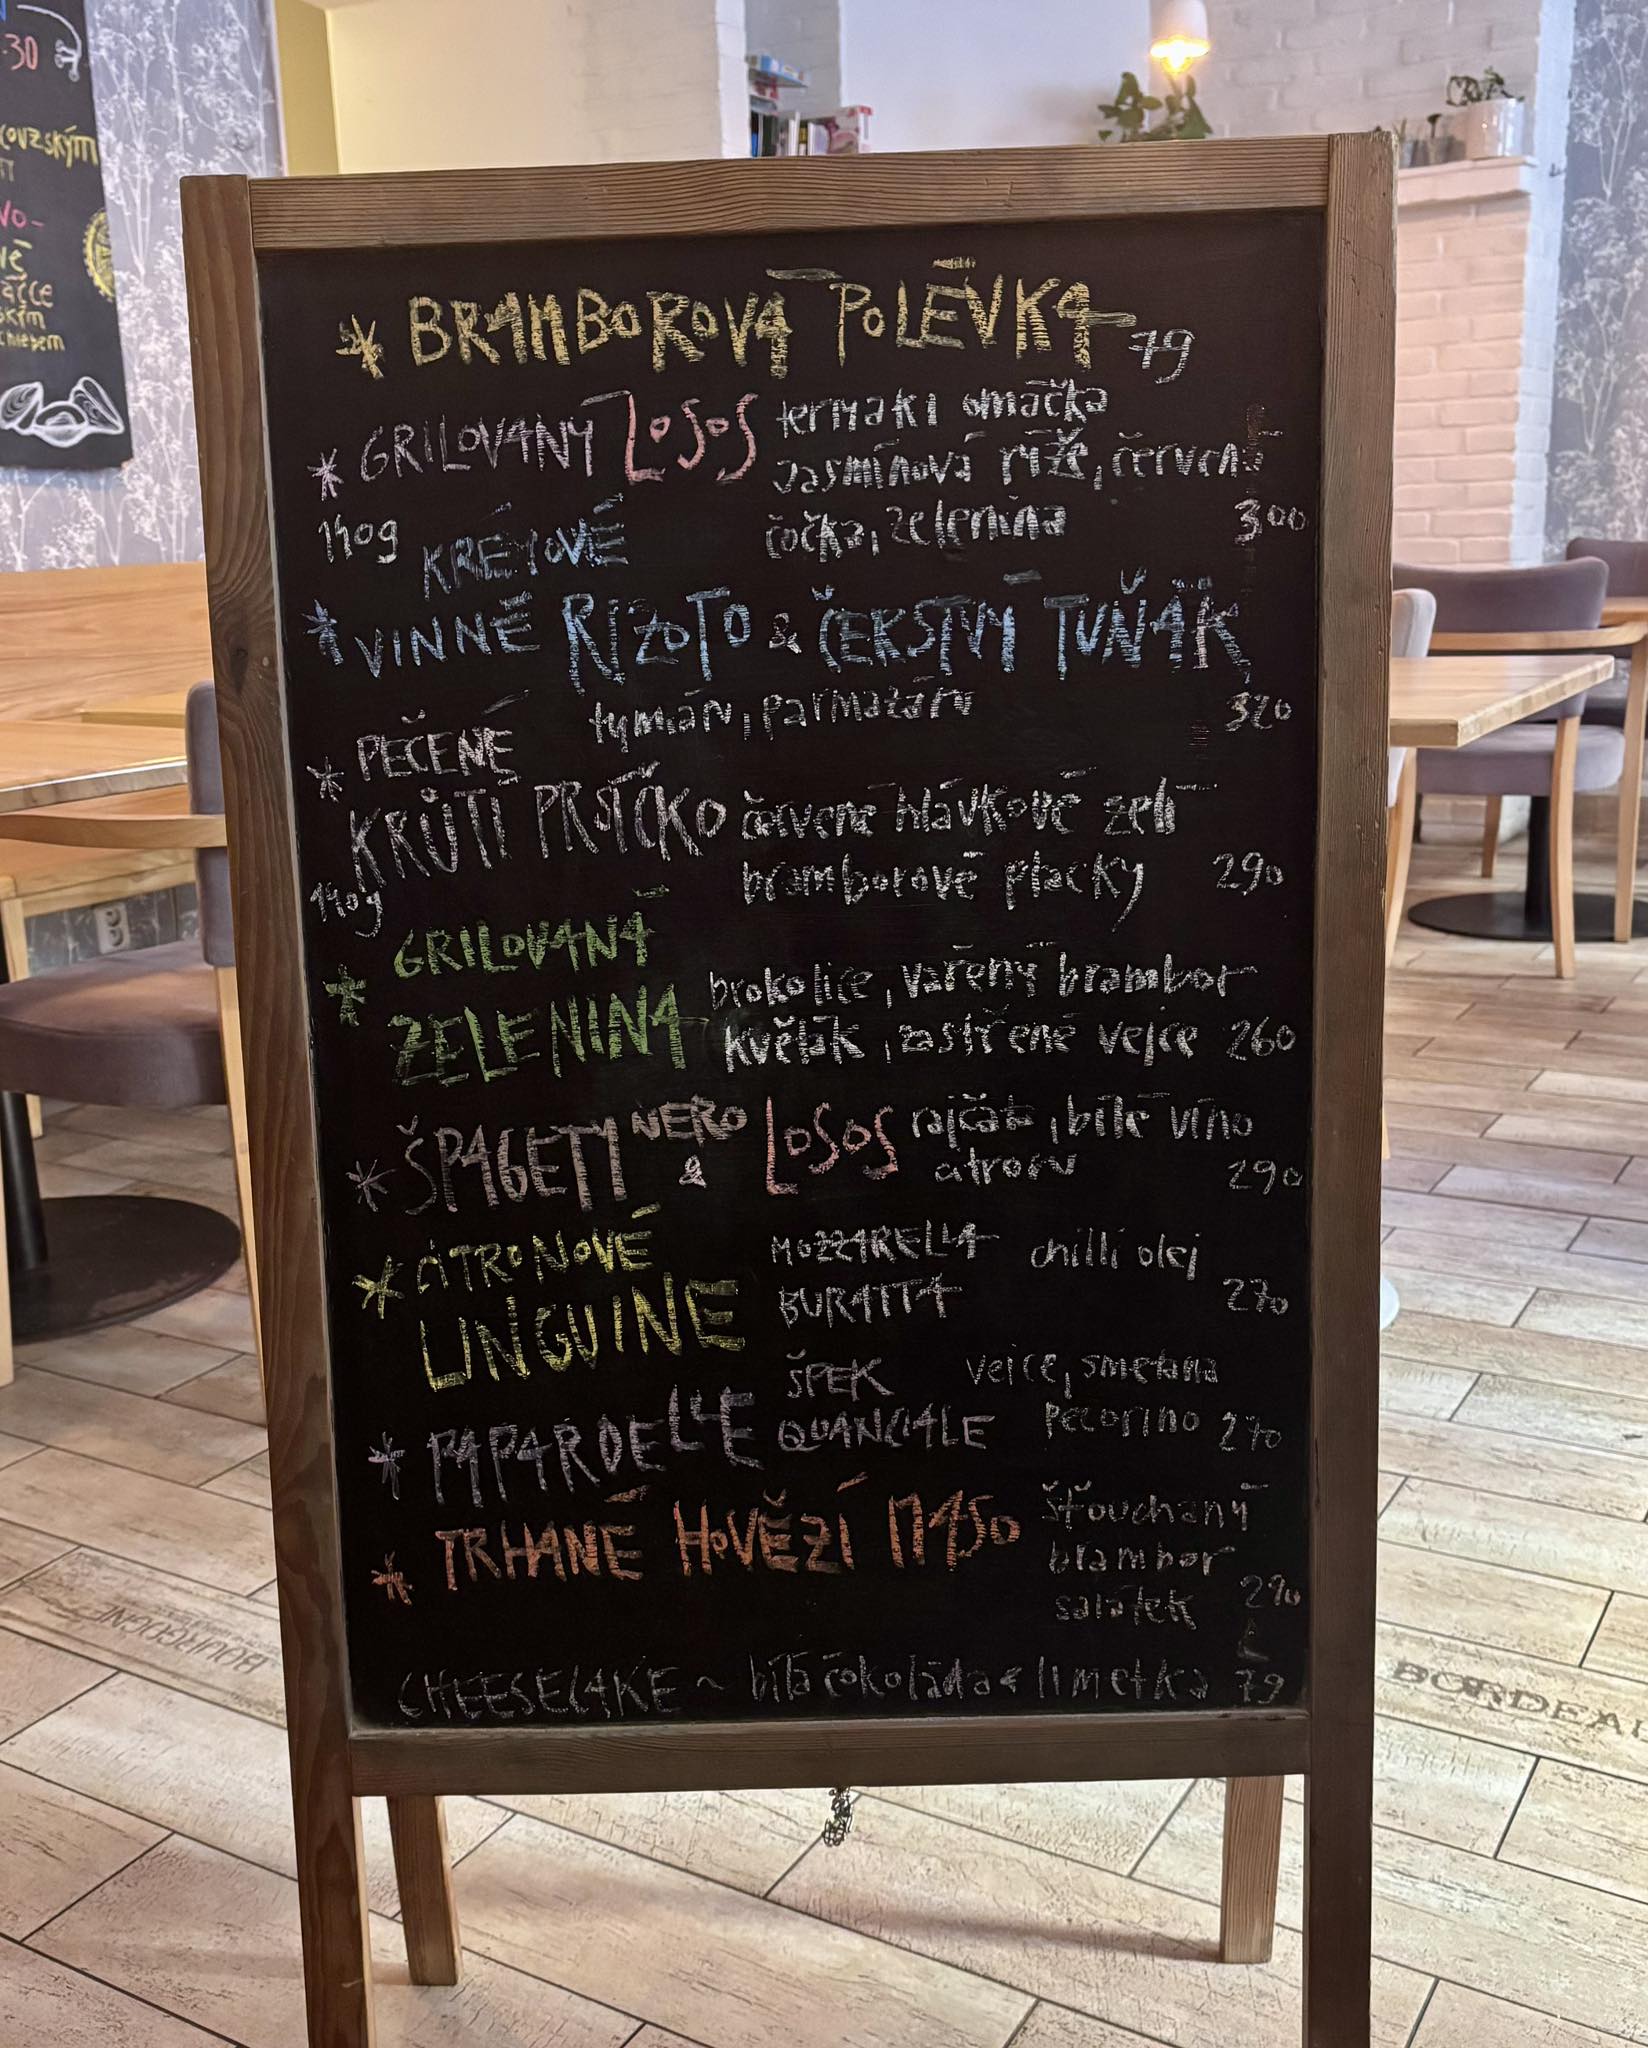 30
* BRAMBOROVÁ POLÉVKA 79
* GRILOVANÝ LOSOS teriyaki omáčka
jasmínová rýže, červená
140g čočka, zelenina 300
KRÉMOVÉ
* VINNÉ RIZOTO & ČERSTVÝ TUŇÁK
tymián, parmazán 320
* PEČENÉ
KRŮTÍ PRSÍČKO červené hlávkové zelí
140g bramborové placky 290
GRILOVANÁ
* ZELENINA brokolice, vařený brambor
květák, zastřené vejce 260
* ŠPAGETY NERO & LOSOS rajčata, bílé víno
citron 290
* CITRONOVÉ MOZZARELLA chilli olej
LINGUINE BURATTA 270
ŠPEK vejce, smetana
* PAPARDELLE QUANCIALE pecorino 270
* TRHANÉ HOVĚZÍ MASO šťouchaný
brambor
salátek 290
CHEESECAKE ~ bílá čokoláda & limetka 79
BORDEAU
BOURGOGNE